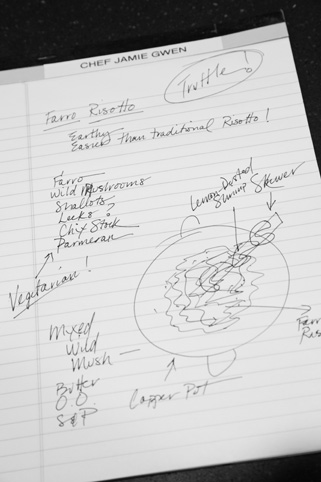 CHEF JAMIE GWEN
Truffle!
Farro Risotto
Earthy
Easier than traditional Risotto!
Farro
Wild Mushrooms
Shallots
Leeks?
Chix Stock
Parmesan
Vegetarian!
Lemon-Dusted
Shrimp Skewer
Mixed
Wild
Mush
Butter
O.O.
S&P
Copper Pot
Farro
Ris